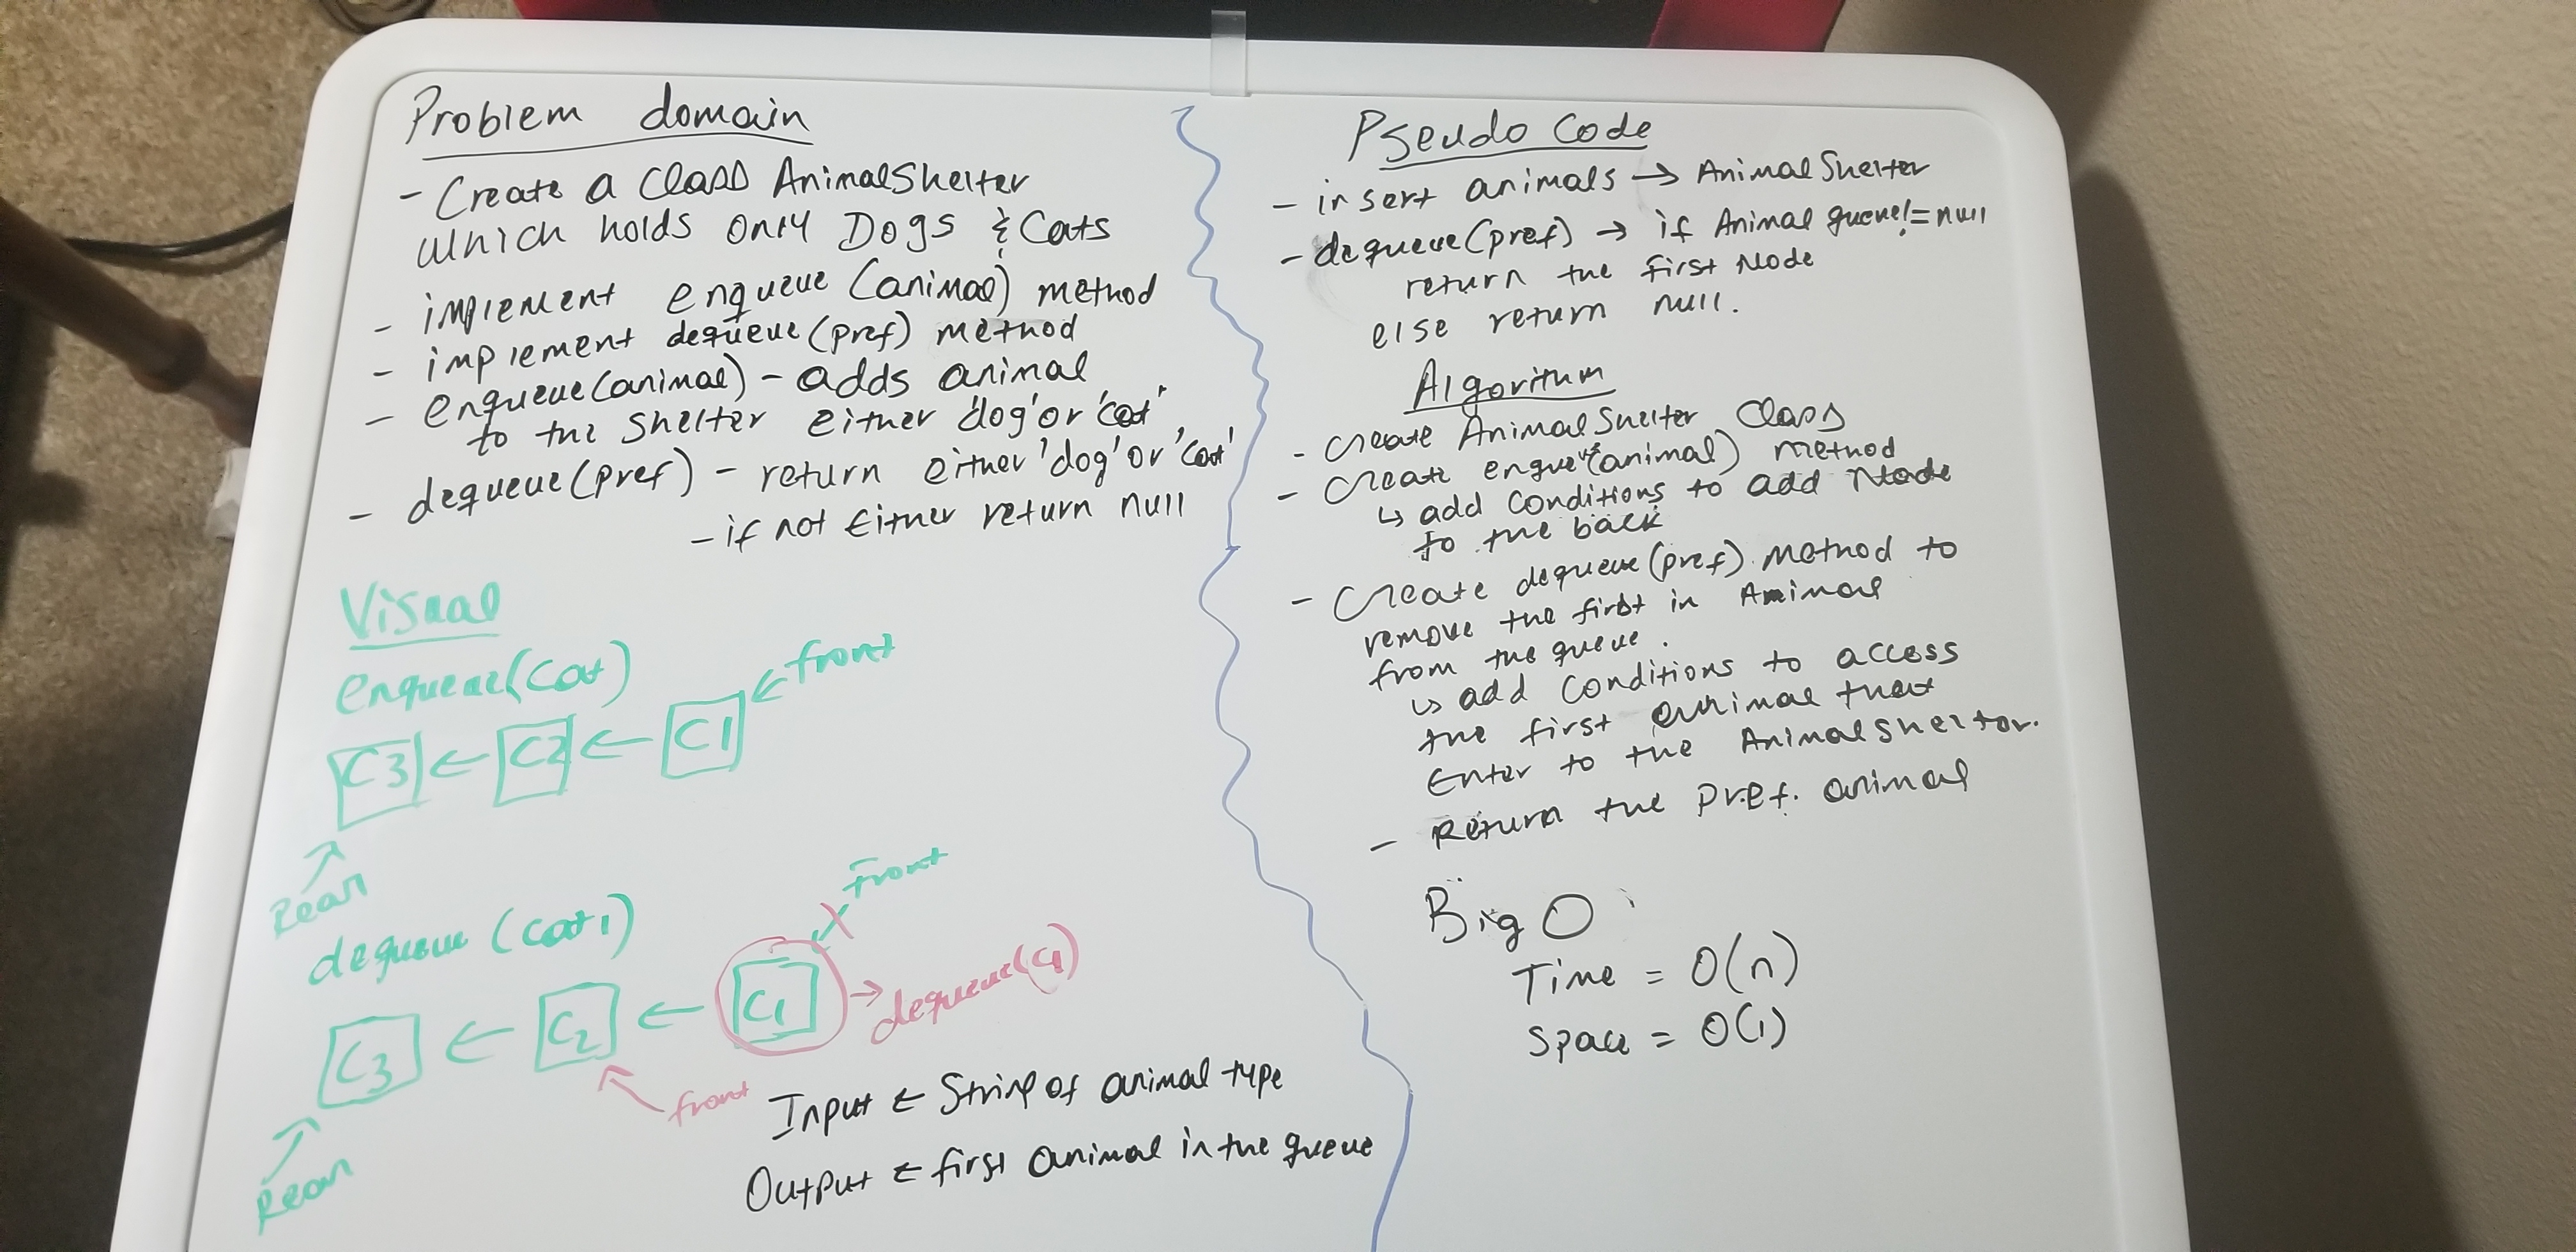 Problem domain
- Create a Class AnimalShelter
which holds only Dogs & Cats
- implement enqueue (animal) method
- implement dequeue (pref) method
- enqueue (animal) - adds animal
to the shelter either 'dog' or 'cat'
- dequeue (pref) - return either 'dog' or 'cat'
- if not Either return null
Visual
enqueue(cat)
front
C3 ← C2 ← C1
Rear
dequeue (cat1)
Front
C3 ← C2 ← C1 → dequeue(C1)
front
Rear
Input ← String of animal type
Output ← first animal in the queue
Pseudo Code
- insert animals → AnimalShelter
- dequeue(pref) → if Animal queue != null
return the first Node
else return null.
Algorithm
- Create AnimalShelter Class
- Create enqueue(animal) method
↳ add conditions to add Node
to the back
- Create dequeue(pref) Method to
remove the first in Animal
from the queue.
↳ add conditions to access
the first animal that
Enter to the AnimalShelter.
- Return the pref. animal
Big O
Time = O(n)
Space = O(1)